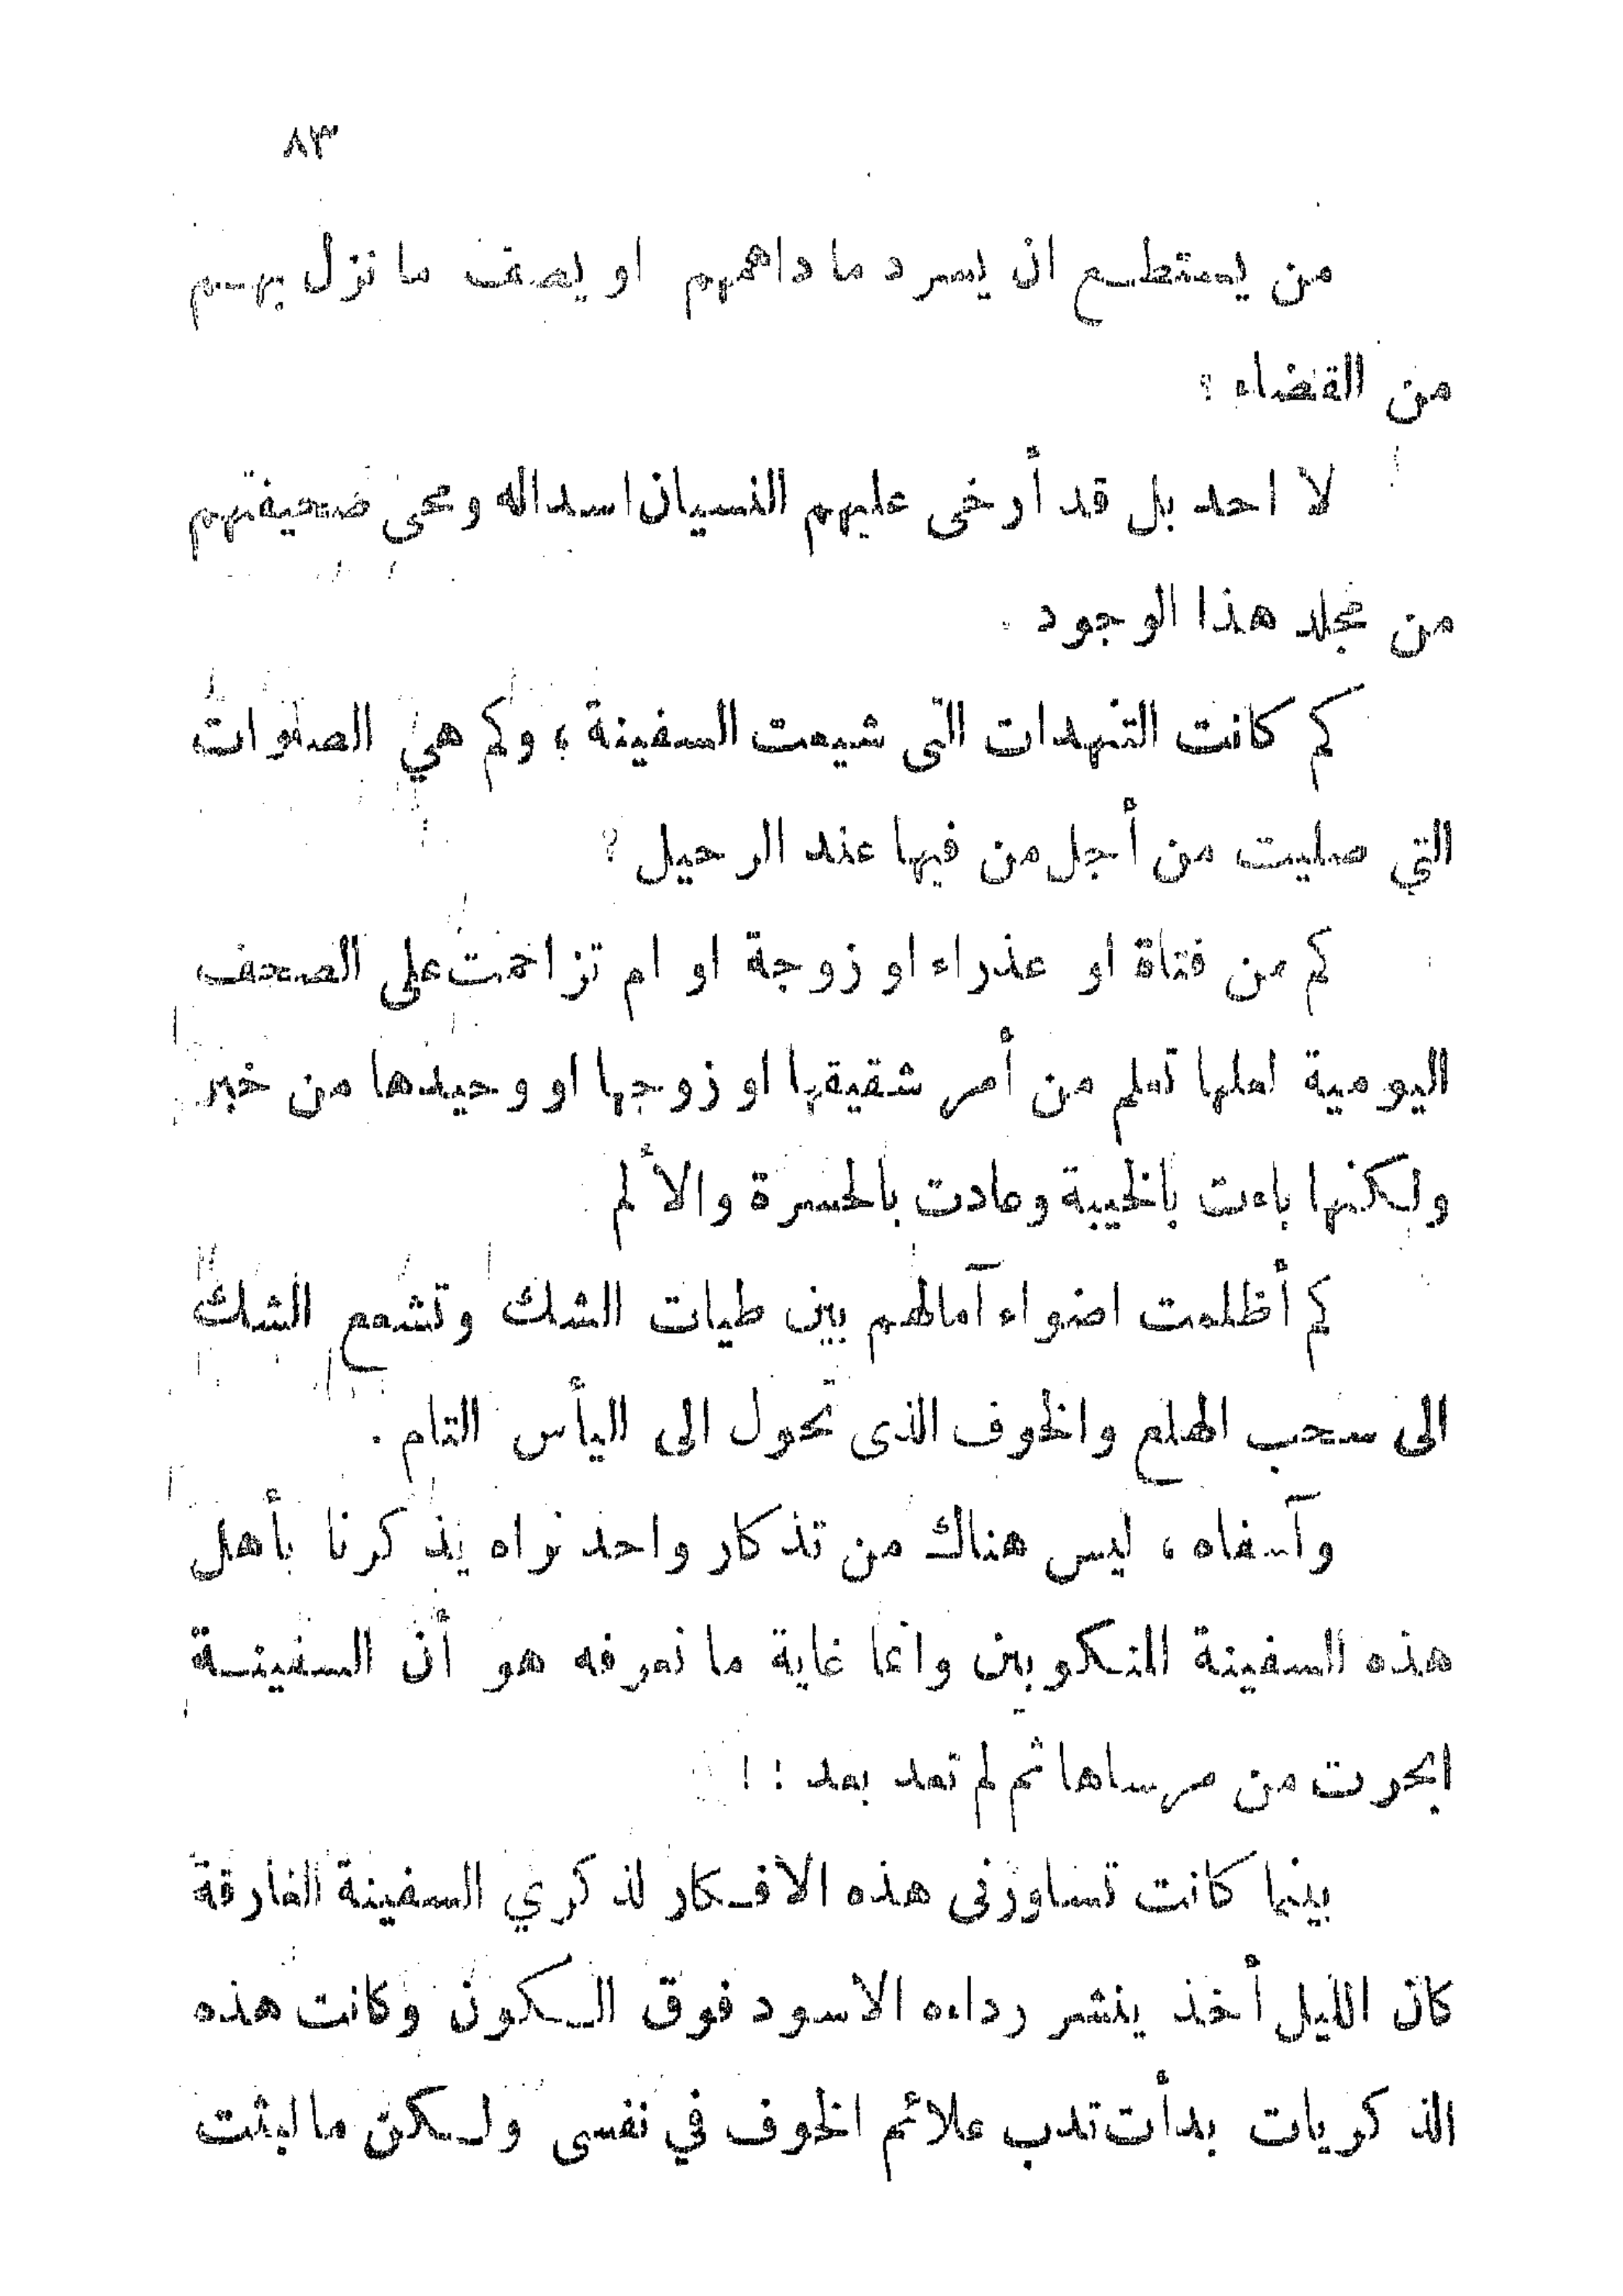 ٨٣
من يستطيع ان يسرد ما داهمهم او يصف ما نزل بهم
من القضاء ؟
لا احد بل قد أرخى عليهم النسيان اسداله ومحى صحيفتهم
من مجلد هذا الوجود .
كم كانت التنهدات التى شيعت السفينة ، وكم هي الصلوات
التي صليت من أجل من فيها عند الرحيل ؟
كم من فتاة او عذراء او زوجة او ام تزاحمت على الصحف
اليومية لعلها تعلم من أمر شقيقها او زوجها او وحيدها من خبر
ولكنها باءت بالخيبة وعادت بالحسرة والألم
كم أظلمت اضواء آمالهم بين طيات الشك وتشعع الشك
الى سحب الهلع والخوف الذى تحول الى اليأس التام .
وآسفاه ، ليس هناك من تذكار واحد نراه يذكرنا بأهل
هذه السفينة المنكوبين وانما غاية ما نعرفه هو أن السفينة
ابحرت من مرساها ثم لم تعد بعد ! !
بينما كانت تساورنى هذه الافكار لذكري السفينة الغارقة
كان الليل أخذ ينشر رداءه الاسود فوق السكون وكانت هذه
الذكريات بدأت تدب علائم الخوف في نفسى ولكن ما لبثت